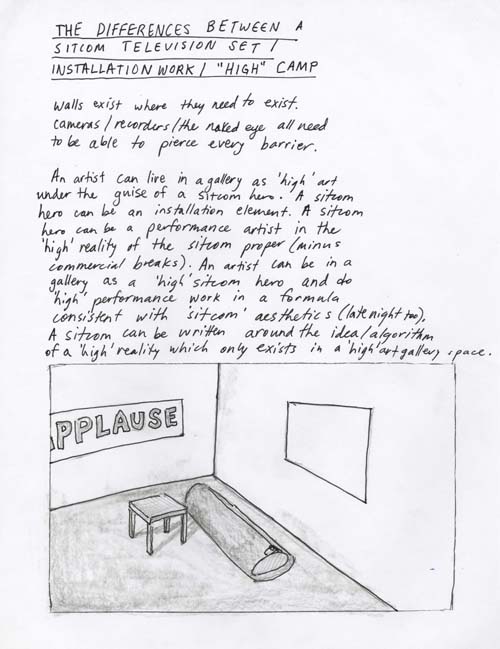 THE DIFFERENCES BETWEEN A
SITCOM TELEVISION SET /
INSTALLATION WORK / "HIGH" CAMP
walls exist where they need to exist.
cameras/recorders/the naked eye all need
to be able to pierce every barrier.
An artist can live in a gallery as 'high' art
under the guise of a sitcom hero. A sitcom
hero can be an installation element. A sitcom
hero can be a performance artist in the
'high' reality of the sitcom proper (minus
commercial breaks). An artist can be in a
gallery as a 'high' sitcom hero and do
'high' performance work in a formula
consistent with 'sitcom' aesthetics (late night too).
A sitcom can be written around the idea/algorithm
of a 'high' reality which only exists in a 'high' art gallery space.
APPLAUSE